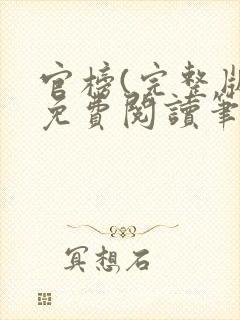 官榜(完整版
免費閱讀筆
冥想石